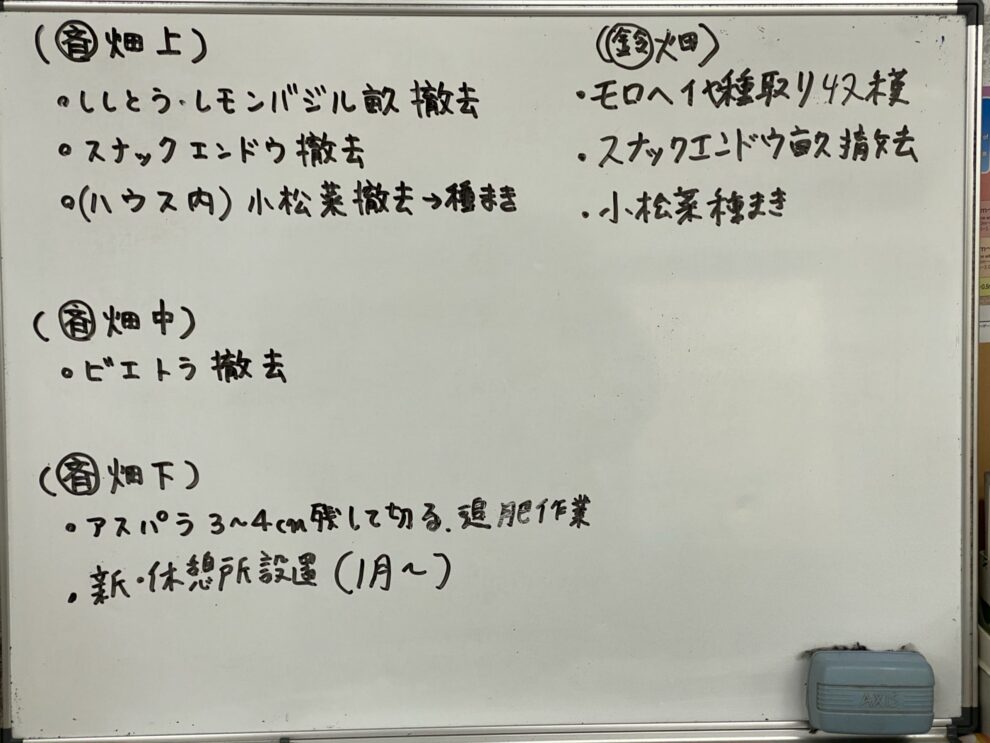 (㊟畑上)
・ししとう・レモンバジル畝 撤去
・スナックエンドウ撤去
・(ハウス内) 小松菜撤去→種まき
(畑中)
・ビエトラ撤去
(畑下)
・アスパラ 3~4cm残して切る、追肥作業
・新・休憩所設置 (1月~)
(鈴畑)
・モロヘイヤ種取り収穫
・スナックエンドウ畝撤去
・小松菜種まき
AXIS